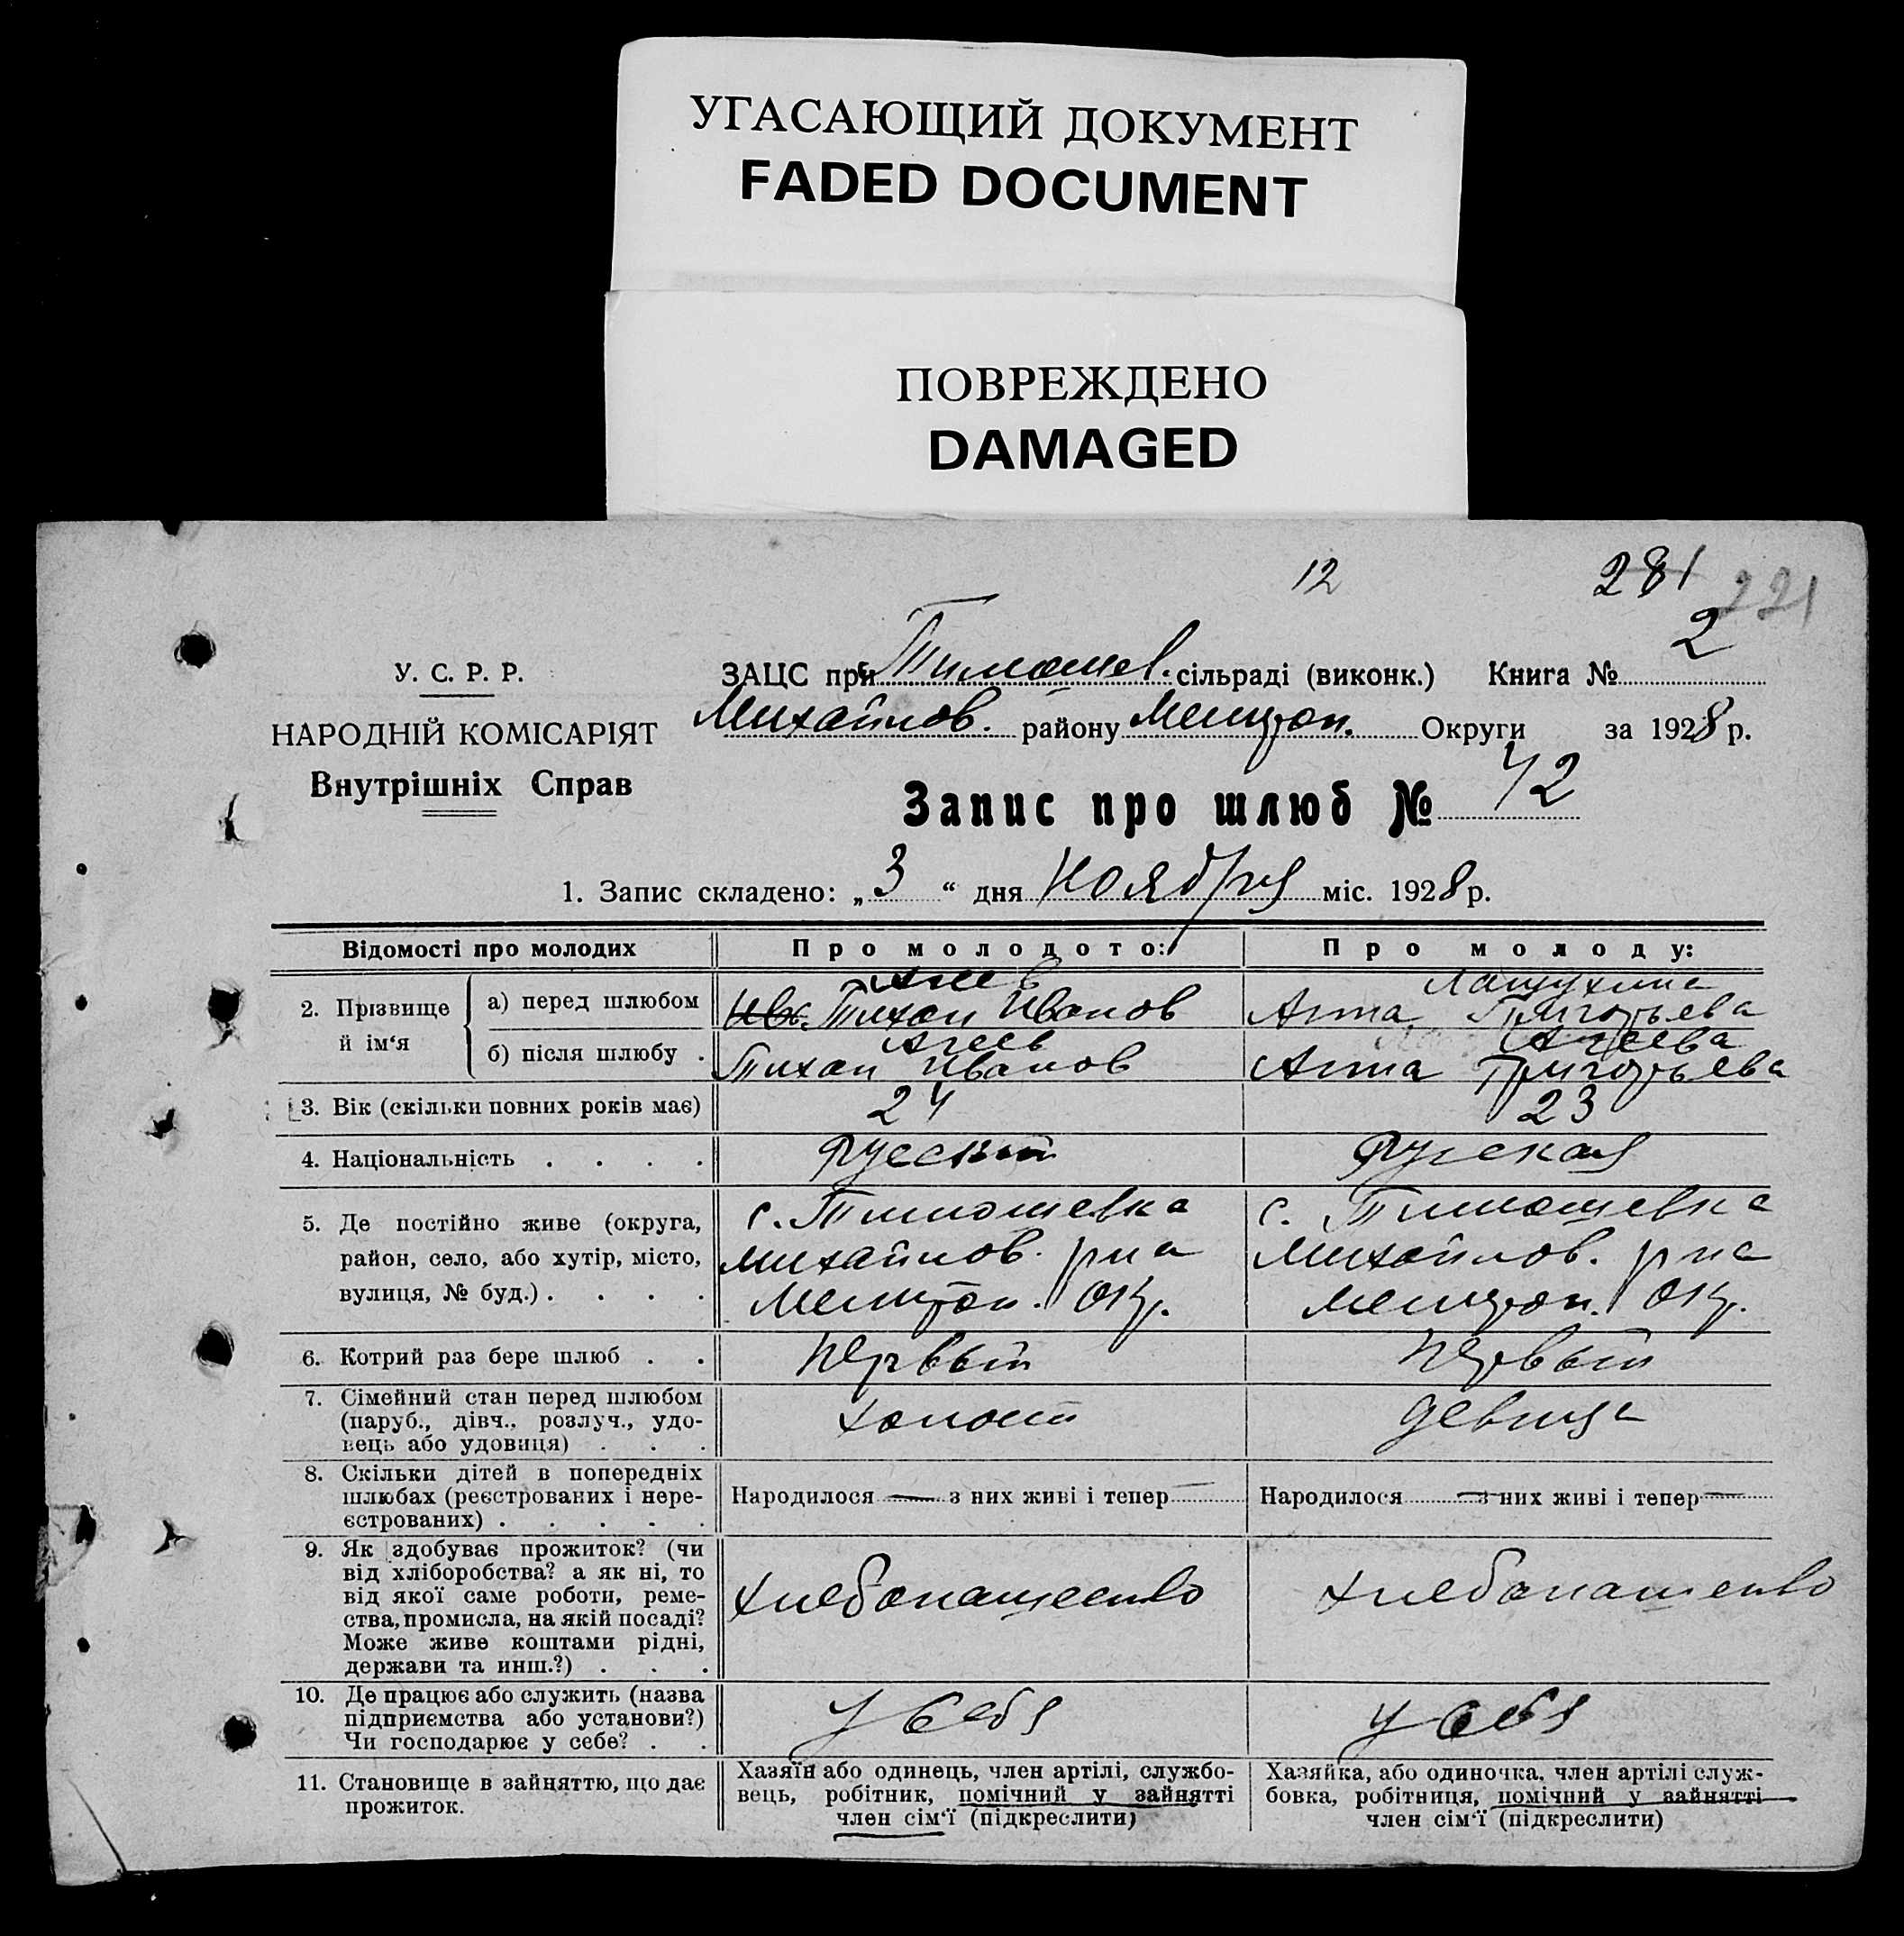 УГАСАЮЩИЙ ДОКУМЕНТ
FADED DOCUMENT
ПОВРЕЖДЕНО
DAMAGED
12
281
221
2
У. С. Р. Р.
НАРОДНІЙ КОМІСАРІЯТ
Внутрішніх Справ
ЗАЦС при Тимошев. сільраді (виконк.) Книга №
Михайлов. району Мелитоп. Округи за 1928 р.
Запис про шлюб № 42
1. Запис складено: „ 3 “ дня Ноября міс. 1928 р.
Відомості про молодих
Про молодого:
Про молоду:
2. Прізвище й ім‘я
а) перед шлюбом
Агеев
Тихон Иванов
Анна Григорьева
б) після шлюбу .
Агеев
Тихон Иванов
Агеева
Анна Григорьева
3. Вік (скільки повних років має)
24
23
4. Національність . . . .
Русский
Руская
5. Де постійно живе (округа,
район, село, або хутір, місто,
вулиця, № буд.) . . . .
с. Тимошевка
Михайлов. р на
Мелитоп. Окр.
с. Тимошевка
Михайлов. р на
Мелитоп. Окр.
6. Котрий раз бере шлюб . .
Первый
Первый
7. Сімейний стан перед шлюбом
(паруб., дівч., розлуч., удо-
вець або удовиця) . . .
холост
девица
8. Скільки дітей в попередніх
шлюбах (реєстрованих і нере-
єстрованих) . . . . .
Народилося — з них живі і тепер —
Народилося — з них живі і тепер —
9. Як здобуває прожиток? (чи
від хліборобства? а як ні, то
від якої саме роботи, реме-
ства, промисла, на якій посаді?
Може живе коштами рідні,
держави та инш.?) . . .
хлебопашество
хлебопашество
10. Де працює або служить (назва
підприємства або установи?)
Чи господарює у себе? . .
у себя
у себя
11. Становище в зайняттю, що дає
прожиток.
Хазяїн або одинець, член артілі, службо-
вець, робітник, помічний у зайнятті
член сім‘ї (підкреслити)
Хазяйка, або одиночка, член артілі служ-
бовка, робітниця, помічний у зайнятті
член сім‘ї (підкреслити)